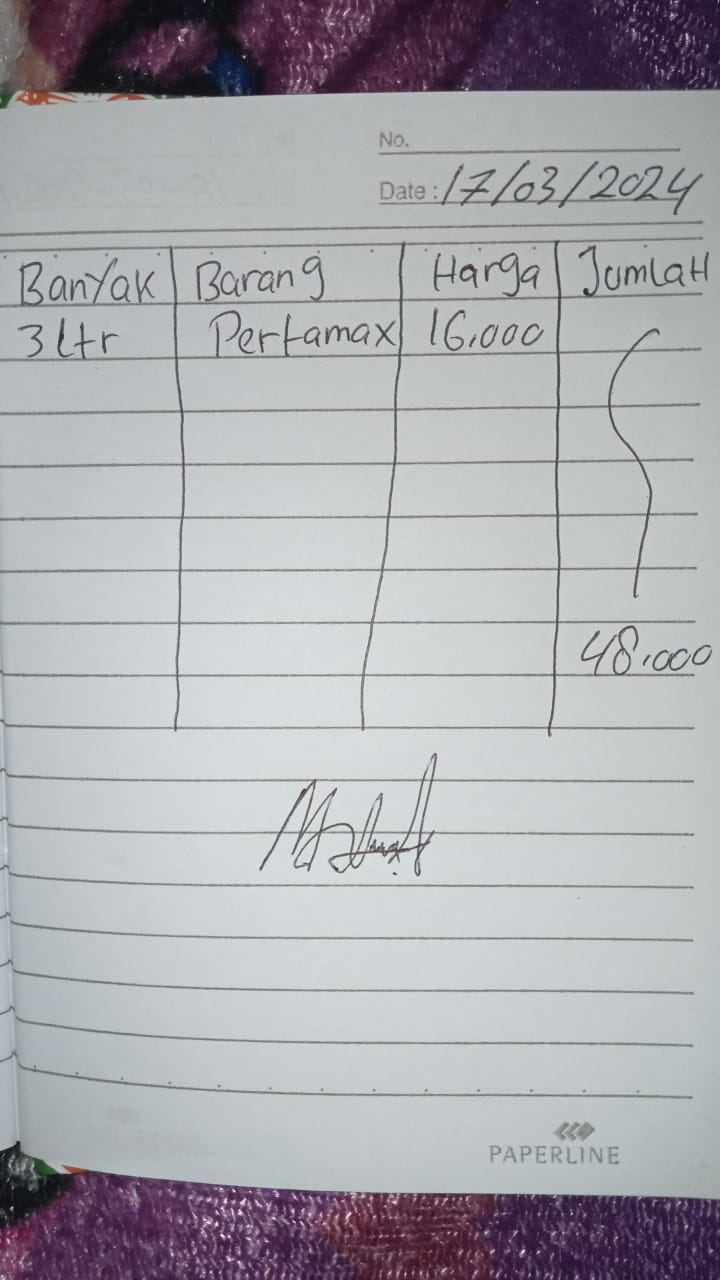 No.
Date : 17/03/2024
Banyak Barang Harga Jumlah
3 Ltr Pertamax 16.000
48.000
PAPERLINE